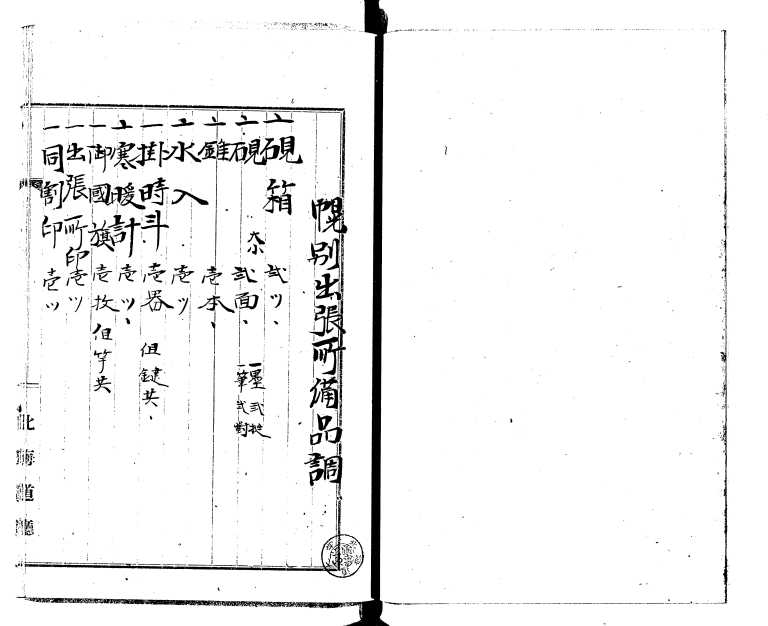 幌別出張所備品調
一硯箱 弐ツ、
一硯 大小 弐面、 一墨 弐挺 一筆 弐對
一錐 壱本、
一水入 壱ツ
一掛時斗 壱器 但鍵共、
一寒暖計 壱ツ、
一御國旗 壱枚 但竿共
一出張所印 壱ツ
一同割印 壱ツ
北海道廳